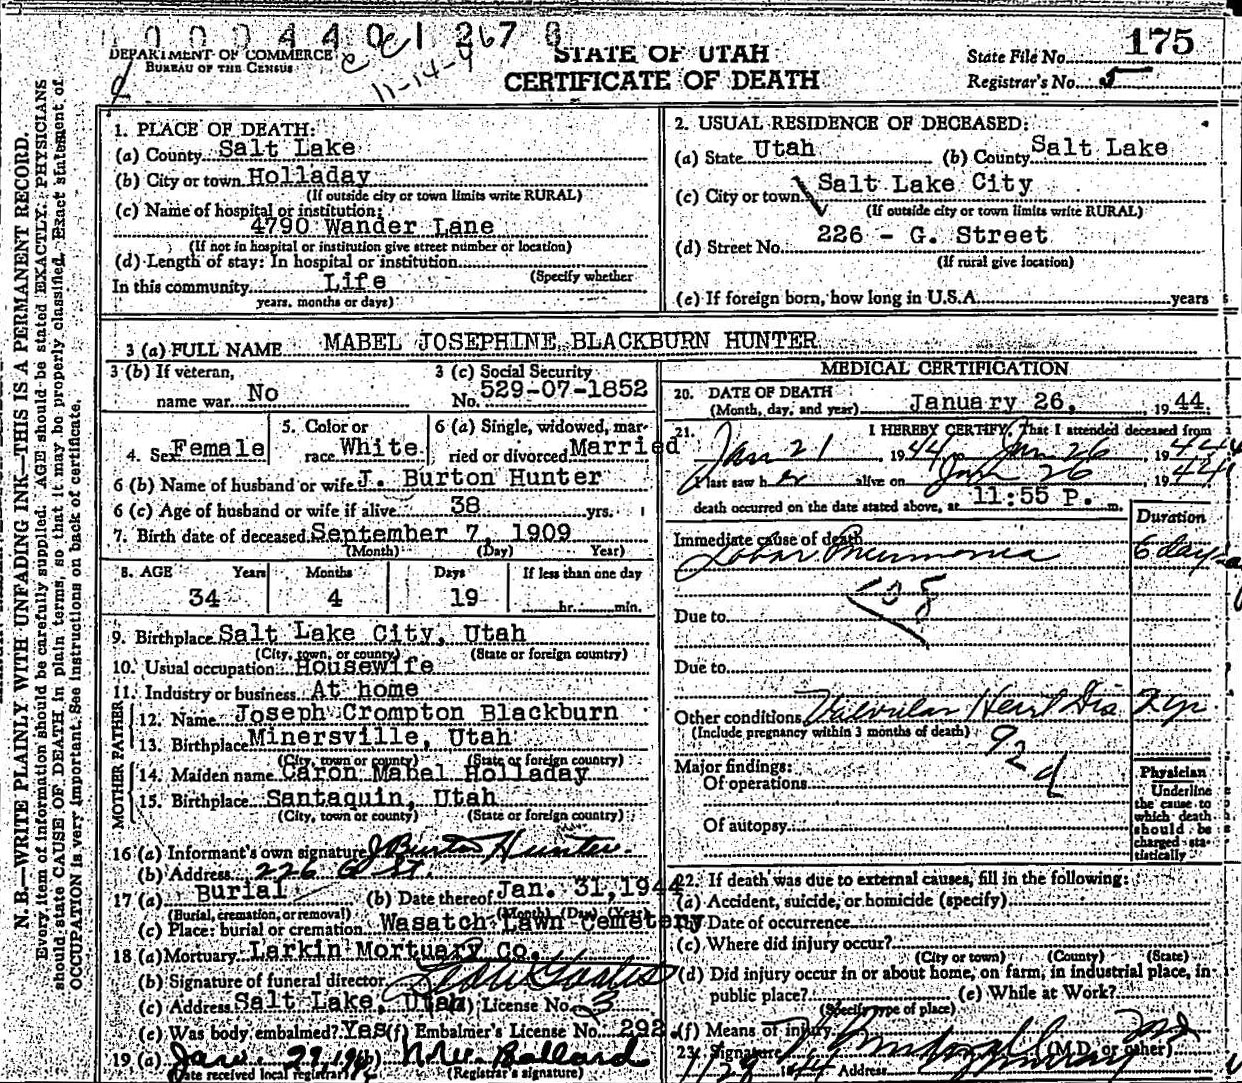 0 0 0 4 4 0 1 267 8
DEPARTMENT OF COMMERCE
BUREAU OF THE CENSUS
11-14-9
STATE OF UTAH
CERTIFICATE OF DEATH
State File No. 175
Registrar's No. 5
N. B.—WRITE PLAINLY WITH UNFADING INK—THIS IS A PERMANENT RECORD.
Every item of information should be carefully supplied. AGE should be stated EXACTLY. PHYSICIANS
should state CAUSE OF DEATH in plain terms, so that it may be properly classified. Exact statement of
OCCUPATION is very important. See instructions on back of certificate.
1. PLACE OF DEATH:
(a) County Salt Lake
(b) City or town Holladay
(If outside city or town limits write RURAL)
(c) Name of hospital or institution:
4790 Wander Lane
(If not in hospital or institution give street number or location)
(d) Length of stay: In hospital or institution
(Specify whether
In this community Life
years, months or days)
2. USUAL RESIDENCE OF DECEASED:
(a) State Utah (b) County Salt Lake
(c) City or town Salt Lake City
(If outside city or town limits write RURAL)
(d) Street No. 226 - G. Street
(If rural give location)
(e) If foreign born, how long in U.S.A. years
3 (a) FULL NAME MABEL JOSEPHINE BLACKBURN HUNTER
3 (b) If veteran,
name war No
3 (c) Social Security
No. 529-07-1852
4. Sex Female
5. Color or
race White
6 (a) Single, widowed, mar-
ried or divorced Married
6 (b) Name of husband or wife J. Burton Hunter
6 (c) Age of husband or wife if alive 38 yrs.
7. Birth date of deceased September 7, 1909
(Month) (Day) Year)
8. AGE Years Months Days If less than one day
34 4 19 hr. min.
9. Birthplace Salt Lake City, Utah
(City, town, or county) (State or foreign country)
10. Usual occupation Housewife
11. Industry or business At home
FATHER
12. Name Joseph Crompton Blackburn
13. Birthplace Minersville, Utah
(City, town or county) (State or foreign country)
MOTHER
14. Maiden name Caron Mabel Holladay
15. Birthplace Santaquin, Utah
(City, town or county) (State or foreign country)
16 (a) Informant's own signature J Burton Hunter.
(b) Address 226 G St.
17 (a) Burial (b) Date thereof Jan. 31, 1944
(Burial, cremation, or removal) (Month) (Day) (Year)
(c) Place: burial or cremation Wasatch Lawn Cemetery
18 (a) Mortuary Larkin Mortuary Co.
(b) Signature of funeral director
(c) Address Salt Lake, Utah (d) License No. 3
(e) Was body embalmed? Yes (f) Embalmer's License No. 292.
19 (a) Jan. 29, 1944 (b) N.W. Ballard
Date received local registrar) (Registrar's signature)
MEDICAL CERTIFICATION
20. DATE OF DEATH
(Month, day, and year) January 26, 1944.
21. I HEREBY CERTIFY, That I attended deceased from
Jan 21, 1944, to Jan 26 1944
I last saw her alive on Jan 26 1944
death occurred on the date stated above, at 11:55 P. m.
Duration
Immediate cause of death
Lobar Pneumonia 6 days
108
Due to
Due to
Other conditions Valvular Heart Dis 2 yr
(Include pregnancy within 3 months of death)
92d
Major findings:
Of operations
Of autopsy
Physician
Underline
the cause to
which death
should be
charged sta-
tistically
22. If death was due to external causes, fill in the following:
(a) Accident, suicide, or homicide (specify)
(b) Date of occurrence
(c) Where did injury occur?
(City or town) (County) (State)
(d) Did injury occur in or about home, on farm, in industrial place, in
public place? (e) While at Work?
(Specify type of place)
(f) Means of injury
23. Signature (M.D. or other)
1/29 1944 Address Murray